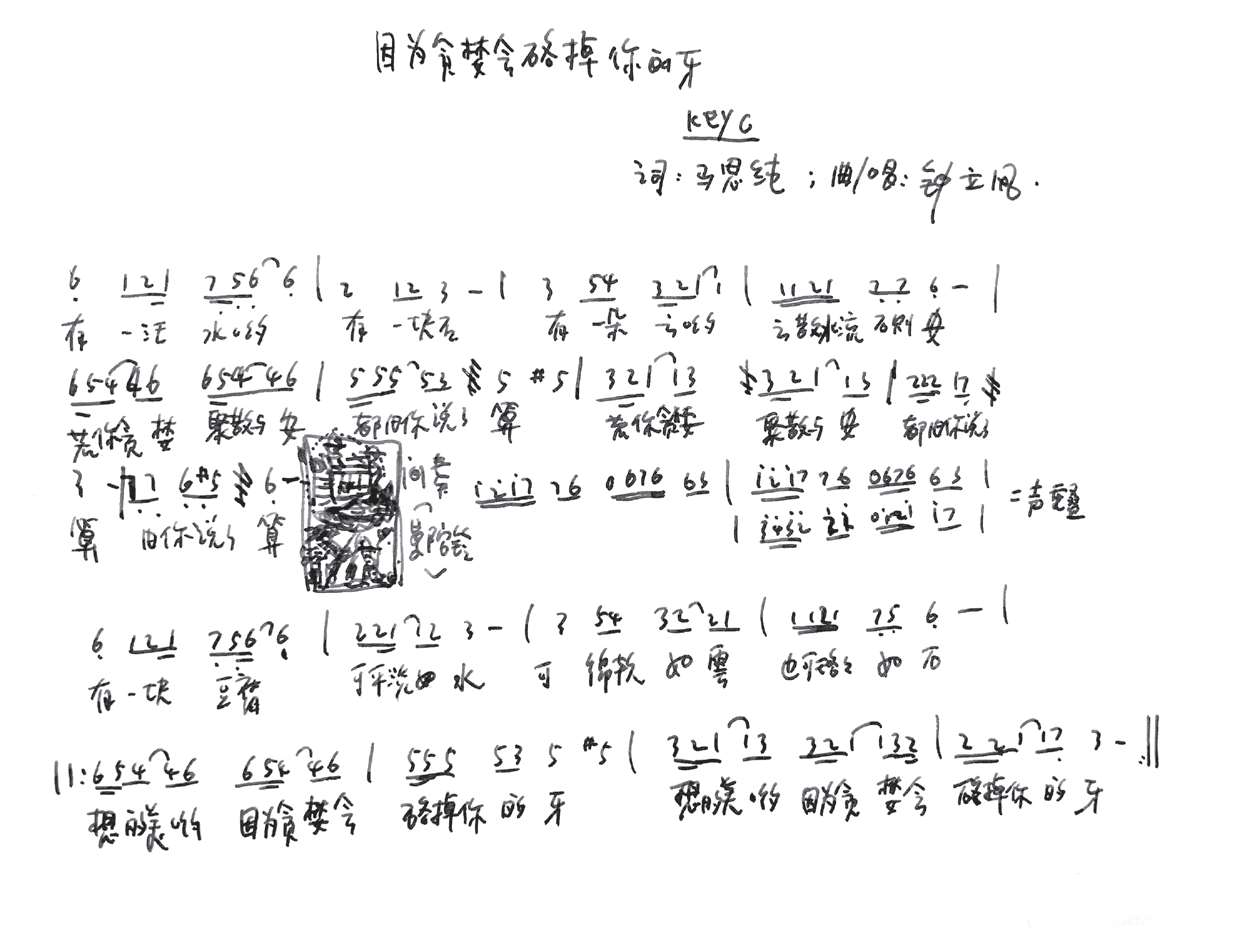 因为贪婪会硌掉你的牙
KEY C
词：马思纯；曲/唱：钟立风.
6 121 756 6 | 2 12 3 - | 3 54 321 1 | 1121 77 6 - |
有 一汪 水哟 有 一块石 有 一朵 云哟 云散水流 石则 安
654 46 654 46 | 555 53 5 #5 | 321 13 321 13 | 222 17
若你贪 婪 聚散与 安 都由你说了 算 若你贪婪 聚散与 安 都由你说了
3 - | 77 6#5 6 - 间奏 1117 76 0676 63 | 1117 76 0676 63 | = 声
算 由你说了 算 | 3432 0121 17 |
6 121 756 6 | 221 72 3 - | 3 54 32 21 | 1121 75 6 - |
有 一块 豆腐 可平淡如 水 可 绵软 如 雲 也可 如 石
||: 654 46 654 46 | 555 53 5 #5 | 321 13 321 132 | 221 17 3 - :||
想的美哟 因为贪婪会 硌掉你 的 牙 想的美哟 因为贪 婪会 硌掉你 的 牙